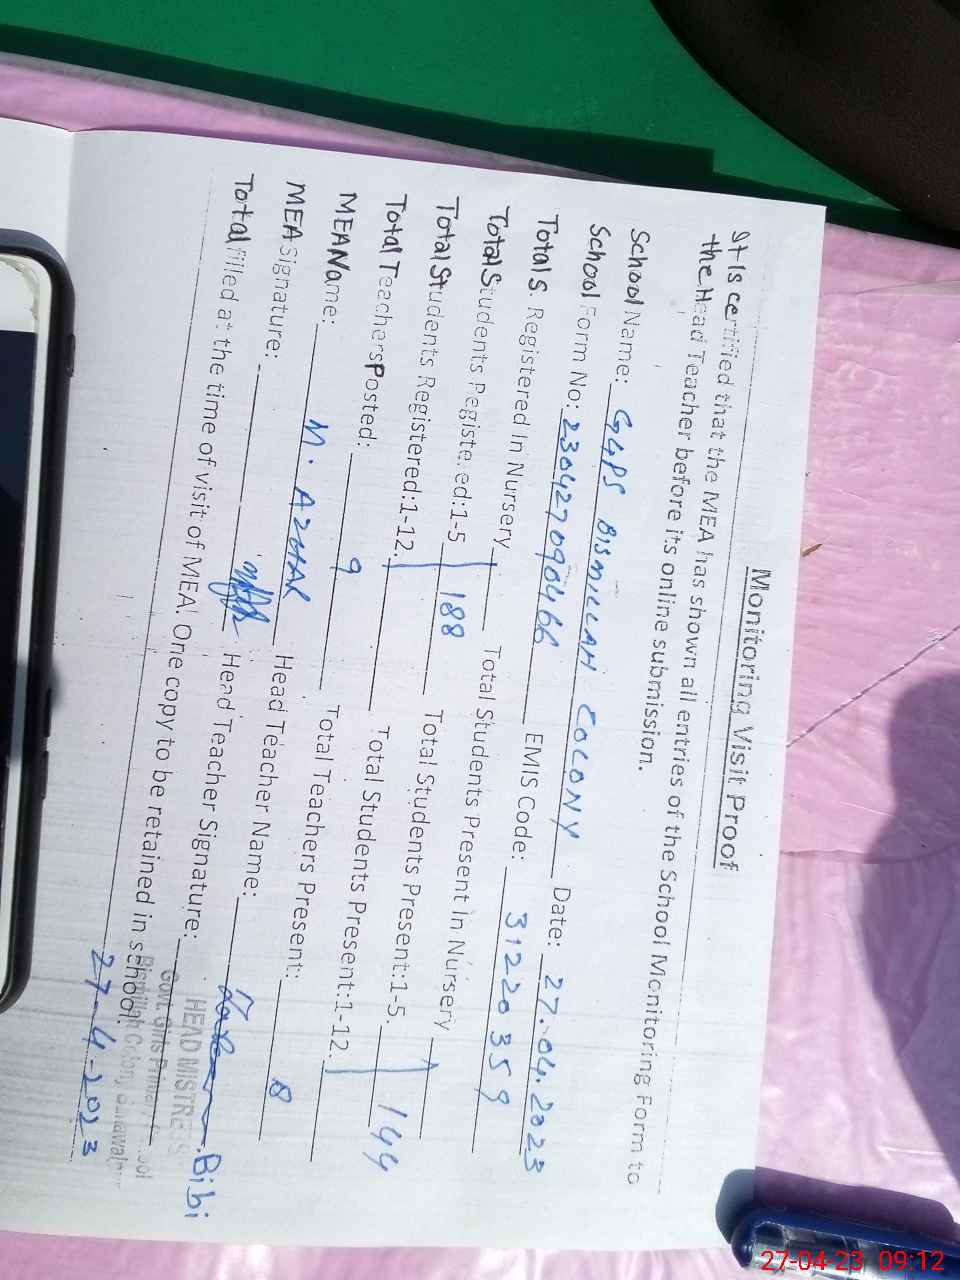 Monitoring Visit Proof
It Is certified that the MEA has shown all entries of the School Monitoring Form to
the Head Teacher before its online submission.
School Name: GGPS BISMILLAH COLONY Date: 27.04.2023
School Form No: 230427090466 EMIS Code: 31220359
Total S. Registered In Nursery Total Students Present In Nursery
Total Students Registered:1-5 188 Total Students Present:1-5. 144
Total Students Registered:1-12. Total Students Present:1-12.
Total Teachers Posted: 9 Total Teachers Present: 8
MEA Name: M. AZHAR Head Teacher Name: Bibi
MEA Signature: Head Teacher Signature:
HEAD MISTRESS
Govt. Girls Primary School
Bismillah Colony
Total filled at the time of visit of MEA! One copy to be retained in school.
27-4-2023
27-04-23 09:12